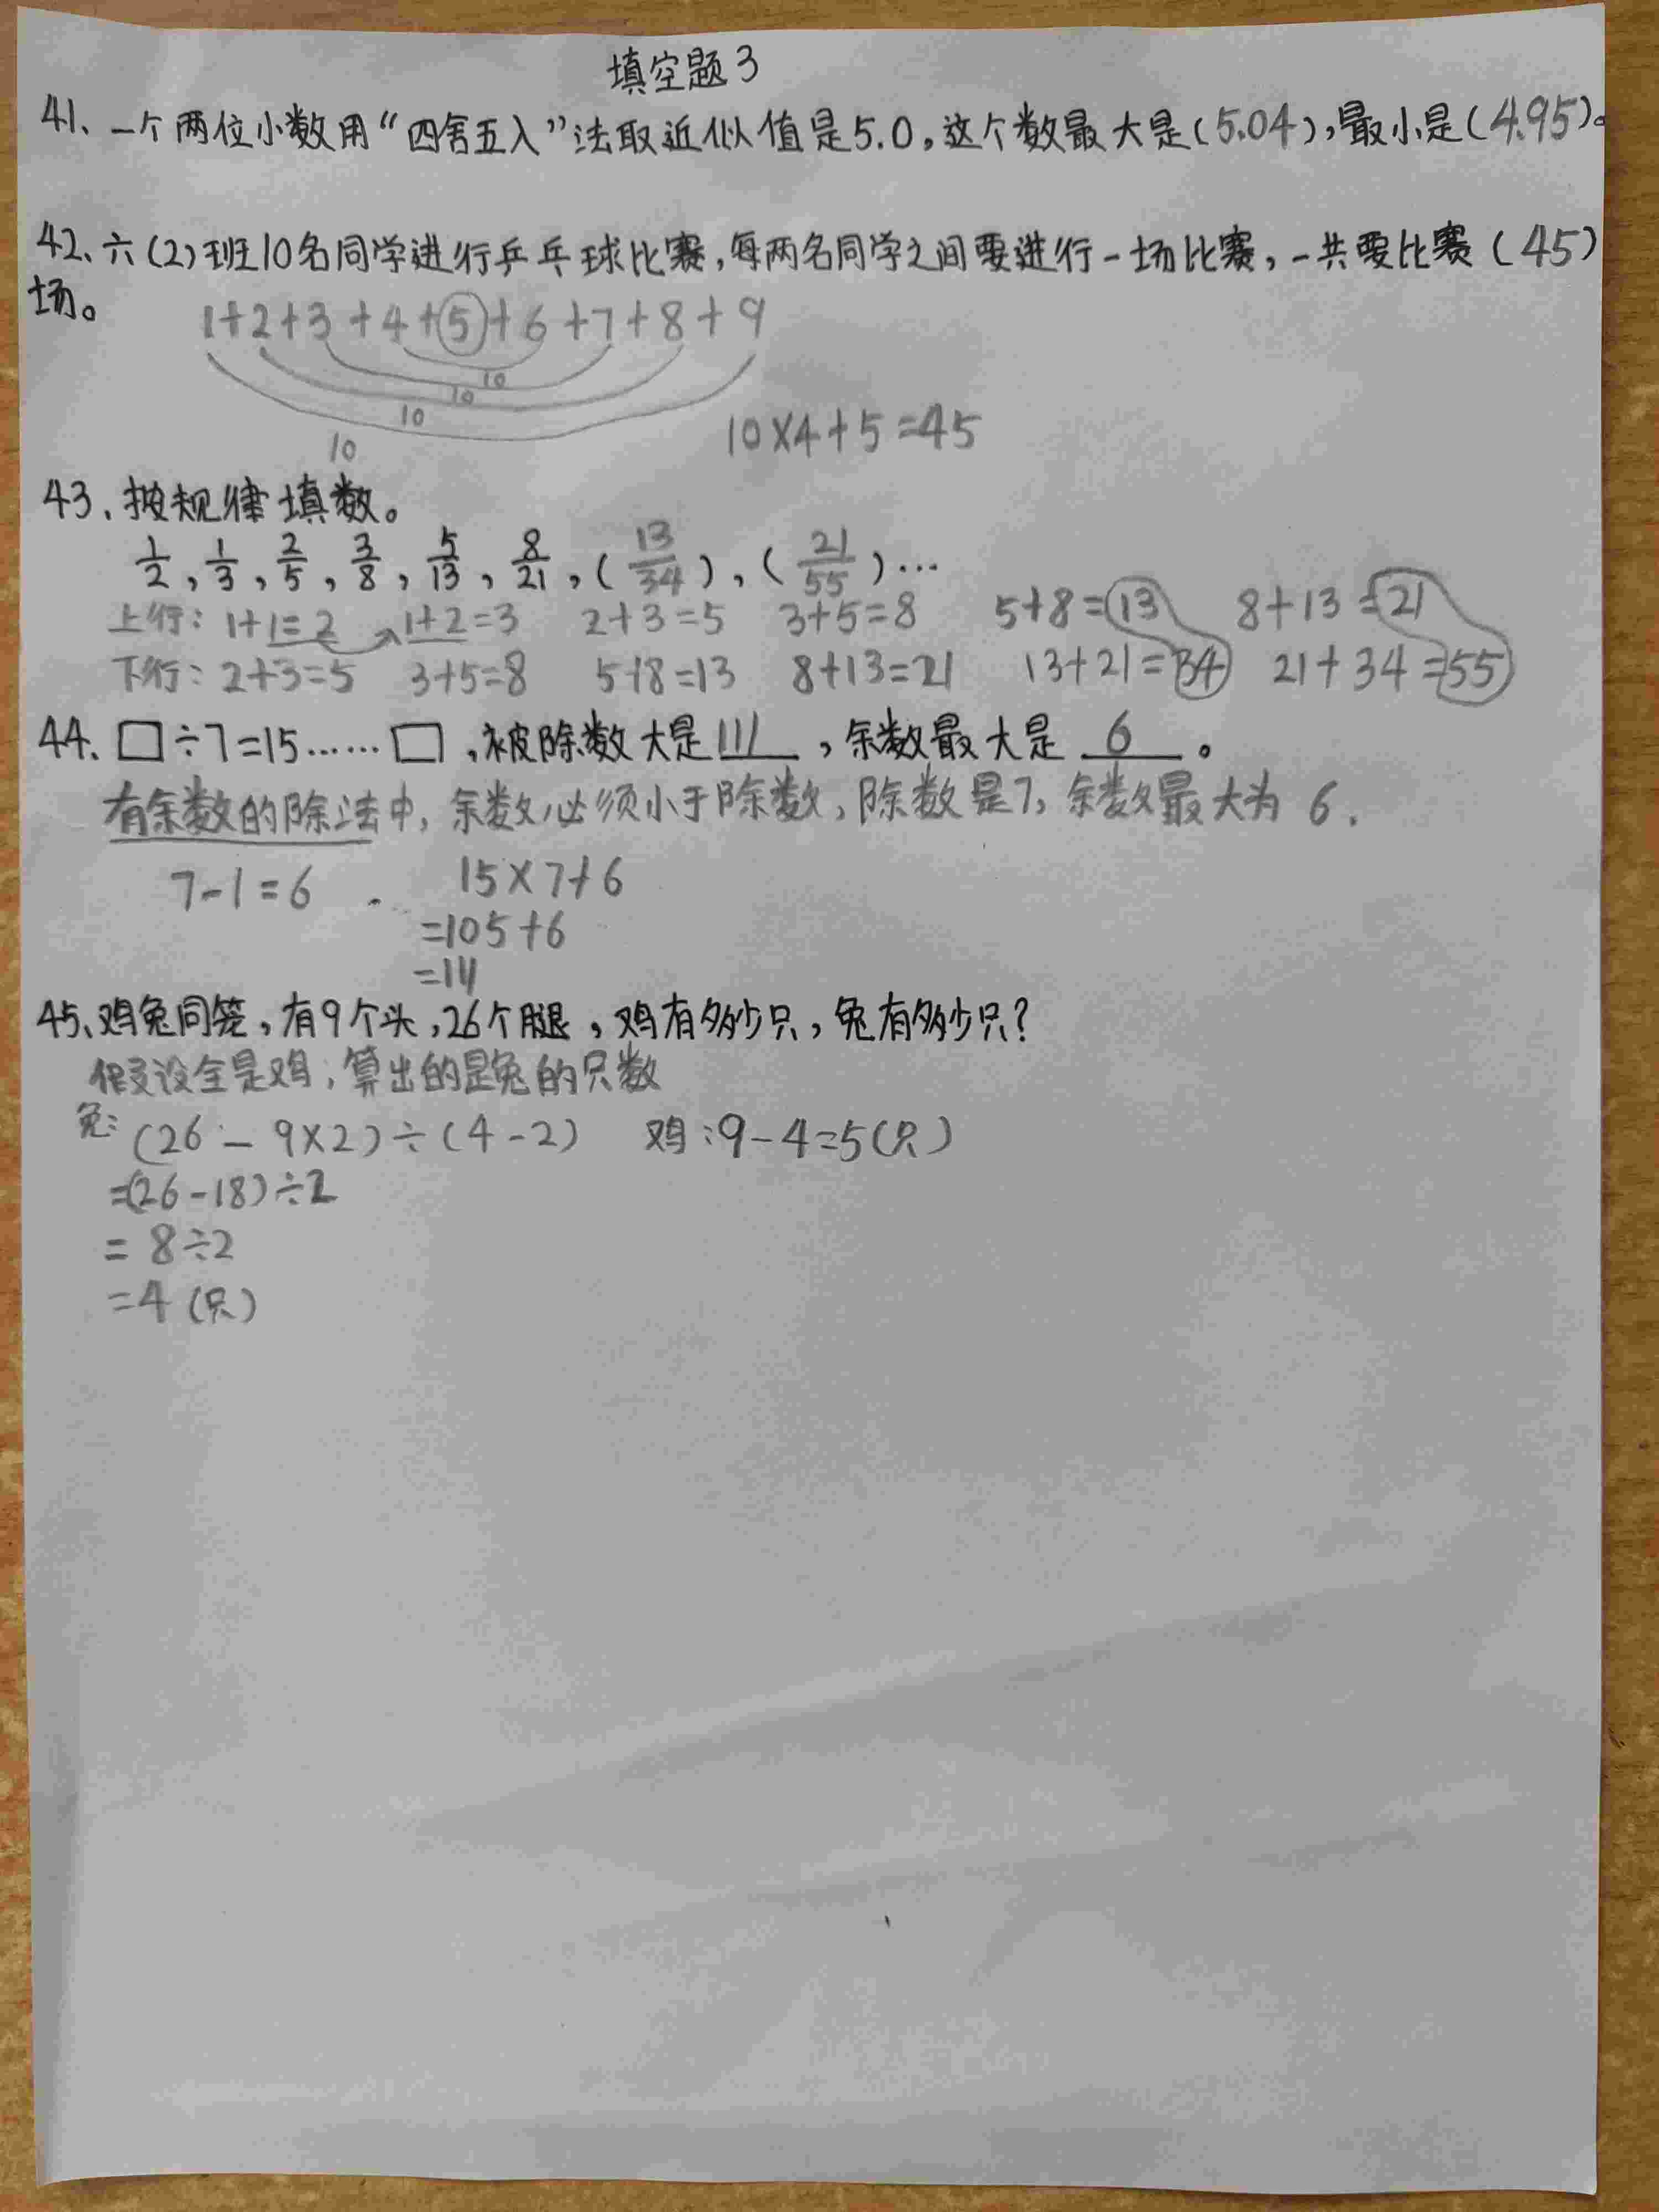 填空题3
41、一个两位小数用“四舍五入”法取近似值是5.0,这个数最大是(5.04),最小是(4.95)。
42、六(2)班10名同学进行乒乓球比赛,每两名同学之间要进行一场比赛,一共要比赛(45)
场。
1+2+3+4+5+6+7+8+9
10
10
10
10
10×4+5=45
43、按规律填数。
1/2,1/3,2/5,3/8,5/13,8/21,(13/34),(21/55)…
上行:1+1=2 1+2=3 2+3=5 3+5=8 5+8=13 8+13=21
下行:2+3=5 3+5=8 5+8=13 8+13=21 13+21=34 21+34=55
44、□÷7=15……□,被除数大是111,余数最大是6。
有余数的除法中,余数必须小于除数,除数是7,余数最大为6.
7-1=6 15×7+6
=105+6
=111
45、鸡兔同笼,有9个头,26个腿,鸡有多少只,兔有多少只?
假设全是鸡,算出的是兔的只数
兔:(26-9×2)÷(4-2) 鸡:9-4=5(只)
=(26-18)÷2
=8÷2
=4(只)